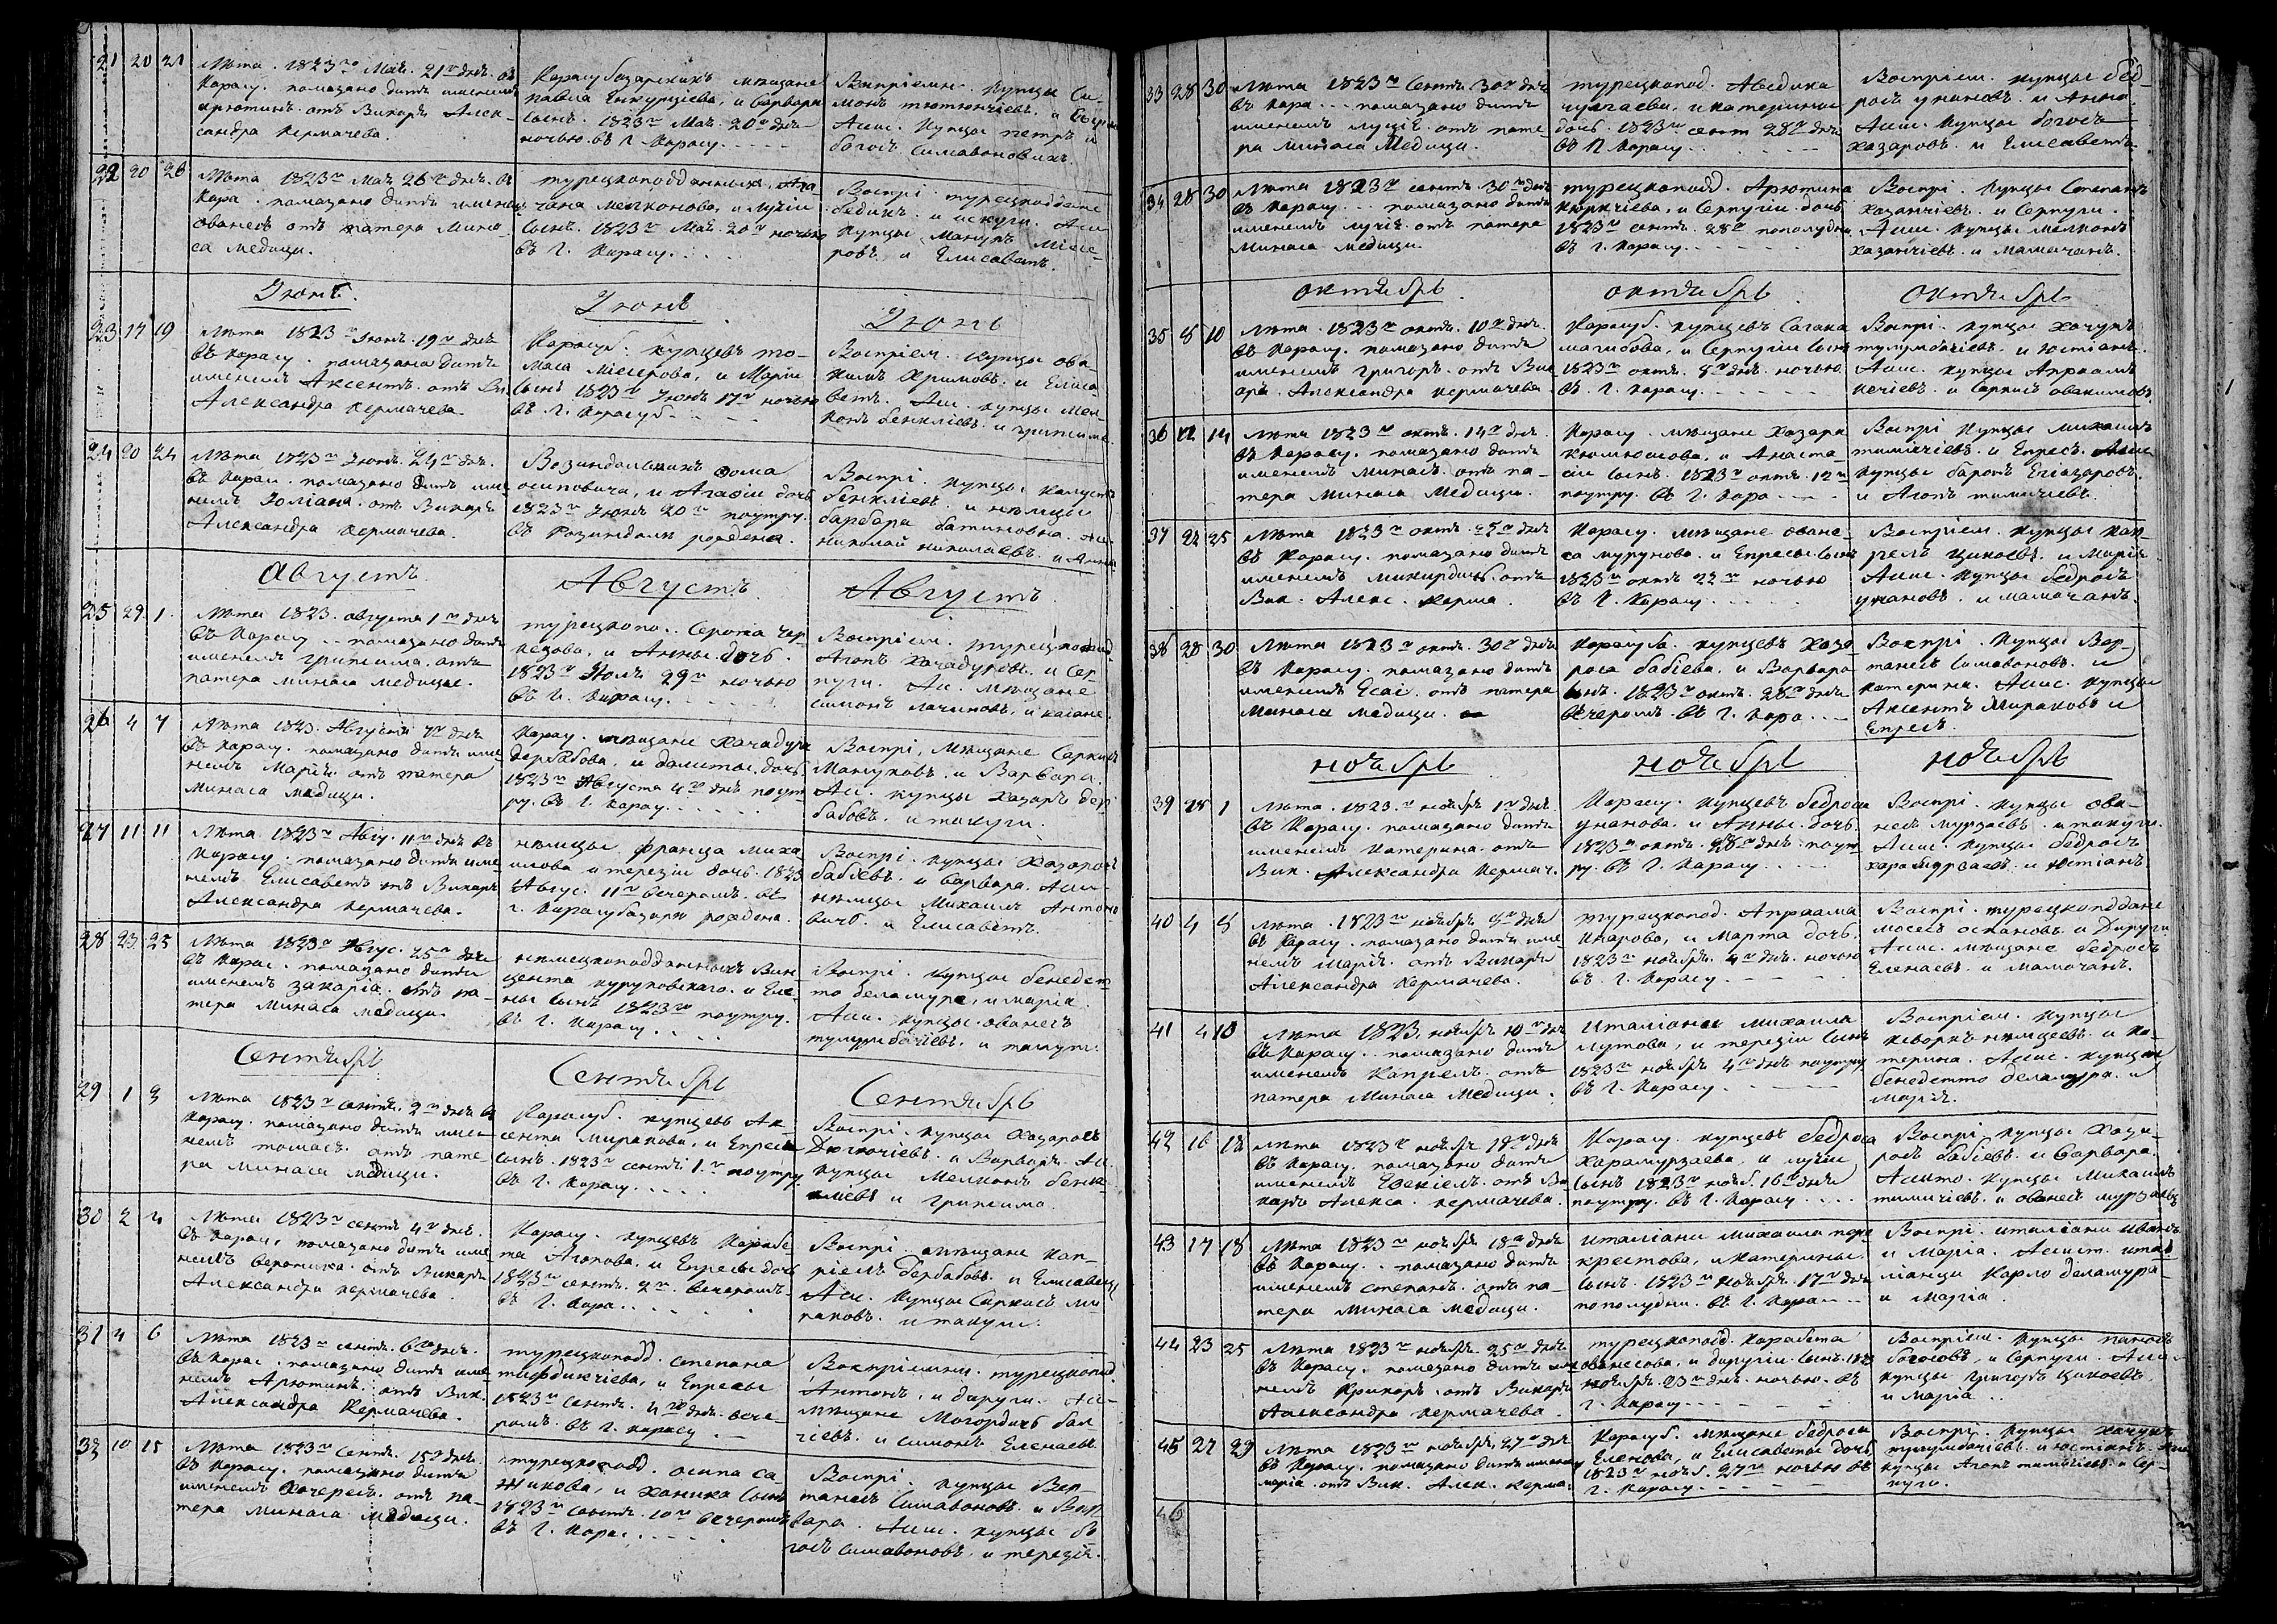 21 20 21
Лѣта 1823го Маѣ. 21го днѣ. въ
Карасу. помазано дитѣ именемъ
Арютинъ. отъ Викарѣ Алек-
сандра Кермачева.
Карасубазарскихъ мѣщане
павла , и варвары
сынъ. 1823го Маѣ. 20го днѣ
ночью. въ г. Карасу.
Воспріемн. купцы Си-
монъ тютюнчіевъ. и
Асис. Купцы петръ и
богосъ Симавоновихъ.
22 20 26
Лѣта 1823го Маѣ 26го днѣ. въ
Кара. помазано дитѣ именемъ
ованесъ отъ патера Мина-
са медици.
турецкоподданныхъ.
мелконова, и Лучіи
сынъ. 1823го Маѣ. 20го ночью
въ г. Карасу.
Воспрі. турецкоподдане
бедикъ. и искуги. Аси
Купцы Манукъ Мисе-
ровъ. и Елисаветъ.
Іюнь.
Іюнь
Іюнь
23 17 19
Лѣта 1823го Іюнѣ. 19го днѣ
въ Карасу. помазано дитѣ
именемъ Аксентъ. отъ Ви.
Александра Кермачева.
Карасуб. купцевъ то-
маса Мисерова, и Маріи
сынъ 1823го Іюнѣ 17го ночью
въ г. Карасуб.
Воспріем. купцы ова-
кимъ Хримовъ. и Елиса-
ветъ. Аси. купцы Мел-
конъ бенкліевъ. и Грипсима.
24 20 24
Лѣта 1823го Іюнѣ. 24го днѣ.
въ Карас. помазано дитѣ име
немъ Юліана. отъ Викарѣ
Александра Кермачева.
Розиндальникъ Фома
осиповича, и Агафіи дочь
1823го Іюнѣ 20го поутру.
въ Розиндали рождена.
Воспрі. купцы
бенкліевъ. и нѣмцы
барбара батиновна. Аси
николай николаевъ. и Анна
Августъ.
Августъ.
Августъ.
25 29 1
Лѣта 1823. августа 1го днѣ
въ Карасу. помазано дитѣ
именемъ Грипсима. отъ
патера минаса медицы.
турецкопо. Серопа Чер-
кезова, и Анны. дочь.
1823го Іюлѣ 29го ночью
въ г. Карасу.
Воспріем. турецкопод
Агопъ Хачадуровъ. и Сер
пуги. Аси. мѣщане
симонъ лачиновъ, и
26 4 7
Лѣта 1823. Августѣ 7го днѣ
въ Карасу. помазано дитѣ име
немъ Маріѣ. отъ патера
Минаса медици.
Карасу. мѣщане Хачадура
дербабова, и долиты. дочь.
1823го Августа 4го днѣ поут-
ру. въ г. Карасу.
Воспрі. Мѣщане Саркисъ
Мануковъ. и Варвара.
Аси. купцы хазаръ дер
бабовъ. и такуги.
27 11 11
Лѣта 1823го Авгу. 11го днѣ въ
Карасу. помазано дитѣ име-
немъ Елисаветъ отъ Викарѣ
Александра Кермачева.
нѣмцы. франца миха
илова и терезіи дочь. 1823
Авгус. 11го вечеромъ. въ
г. Карасубазари рождена.
Воспрі. купцы Хазаросъ
бабіевъ. и варвара. Аси-
нѣмцы Михаилъ Антоно
вичъ и Елисаветъ.
28 23 25
Лѣта 1823го Авгус. 25го днѣ
въ Карас. помазано дитѣ
именемъ закаріа. отъ па-
тера Минаса медици.
нѣмецкоподданныхъ Вин
цента куруковскаго. и Еле-
ны сынъ 1823го поутру.
въ г. Карасу.
Воспрі. купцы бенедет
то деламуре, и маріа
Аси. купцы. ованесъ
тулумбачіевъ. и такуги.
Сентѣбрь
Сентѣбрь
Сентѣбрь
29 1 3
Лѣта 1823го Сентѣ. 2го днѣ въ
Карасу. помазано дитѣ име-
немъ томасъ. отъ пате-
ра минаса медици.
Карасуб. купцевъ Ак-
сента миракова, и Епресы
сынъ. 1823го сентѣ. 1го поутру
въ г. Карасу.
Воспрі. купцы Хазаросъ
Дюгючіевъ. и Варварѣ. Аси.
купцы Мелконъ бенк-
ліевъ и Грипсима.
30 2 4
Лѣта 1823го сентѣ 4го днѣ.
въ Карасу, помазано дитѣ име
немъ вероника. отъ Викарѣ
Александра Кермачева.
Карасу. купцевъ Карабе-
та Агопова, и Епресы дочь
1823го сентѣ. 2го вечеромъ.
въ г. Кара.
Воспрі. мѣщане Кап-
ріелъ дербабовъ. и Елисавецъ
Аси. купцы Саркисъ Ми-
раковъ. и такуги.
31 4 6
Лѣта 1823го сентѣ. 6го днѣ.
въ Карас. помазано дитѣ име
немъ Арютинъ. отъ Вик.
Александра Кермачева.
турецкопод. степана
тифдикчіева, и Епресы
1823го сентѣ. 4го днѣ. вече-
ромъ. въ г. Карасу.
Воспріемни. турецкопод.
Антонъ, и дируги. Аси-
мѣщане Могордичь бал
чіевъ. и симонъ Еленаевъ.
32 10 15
Лѣта 1823го сентѣ. 15го днѣ.
въ Карасу. помазано дитѣ
именемъ Хачересъ. отъ па-
тера минаса медици.
турецкопод. осипа са
жикова, и ханика сынъ
1823го сентѣ. 10го вечеромъ
въ г. Карас.
Воспрі. купцы Вер-
танесъ Симавоновъ. и Вар-
вара. Асис. купцы бо
госъ симавоновъ, и терезіѣ.
33 28 30
Лѣта 1823го Сентѣ. 30го днѣ
въ Кара. помазано дитѣ
именемъ луціѣ. отъ пате
ра минаса Медици.
турецкопод. Аведика
чулгаева, и катерины
дочь. 1823го сент 28го днѣ
въ г. Карасу.
Воспріем. купцы бед-
росъ унановъ. и Анна.
Асис. Купцы богосъ
хазаровъ. и Елисаветъ.
34 28 30
Лѣта 1823го сентѣ. 30го днѣ
въ Карасу. помазано дитѣ
именемъ лучіѣ. отъ патера
Минаса медици.
турецкопод. Арютина
кюркчіева, и Серпугіи дочь
1823го сентѣ. 28го пополудни
въ г. Карасу.
Воспрі. купцы Степанъ
Хазанчіевъ. и Серпуги.
Асис. купцы мелконъ
хазанчіевъ. и мамачанъ.
октѣбрь
октѣбрь
октѣбрь
35 8 10
Лѣта. 1823го октѣ. 10го днѣ.
въ Карасу. помазано дитѣ
именемъ григоръ. отъ Вик
арѣ. Александра Кермачева
Карасуб. купцевъ Сагака
магибова, и Серпугіи сынъ
1823го октѣ. 8го днѣ. ночью
въ г. Карасу.
Воспрі. купцы хачукъ
тулумбачіевъ. и юстіанѣ.
Асис. купцы Апраамъ
кечіевъ. и Саркисъ овакимовъ.
36 12 14
Лѣта 1823го октѣ. 14го днѣ.
въ Карасу. помазано дитѣ
именемъ минасъ. отъ па-
тера минаса медици.
Карасу. мѣщане хазара
кюмюшова, и Анаста
сіи сынъ. 1823го октѣ. 12го
поутру. въ г. Кара.
Воспрі купцы михаилъ
тимичіевъ. и Епресъ. Асис
купцы баронъ Егіазаровъ.
и Агопъ тимичіевъ.
37 22 25
Лѣта 1823го октѣ. 25го днѣ
въ Карасу. помазано дитѣ
именемъ микирдичь. отъ
Вик. Алекс. Керма.
Карасу. мѣщане ована-
са мурунова. и Епресы. сынъ
1823го октѣ 22го ночью
въ г. Карасу.
Воспріем. купцы кап-
релъ цакоевъ. и маріѣ
Асис. купцы бедросъ
унановъ. и мамачанъ.
38 28 30
Лѣта 1823го октѣ. 30го днѣ
въ Карасу. помазано дитѣ
именемъ Есаі. отъ патера
Минаса медици.
Карасуба. купцевъ Хаза-
роса бабіева. и Варвара
сынъ. 1823го октѣ. 28го днѣ
вечеромъ. въ г. Кара.
Воспрі. купцы Вар-
танесъ Симавоновъ. и
катерина. Асис. купцы
Аксентъ Мираковъ и
Епресъ.
ноѣбрь
ноѣбрь
ноѣбрь
39 28 1
Лѣта. 1823го ноѣбрѣ 1го днѣ.
въ Карасу. помазано дитѣ
именемъ катерина. отъ
Вик. Александра Кермач.
Карасу. купцевъ бедроса
унанова. и Анны. дочь.
1823го октѣ. 28го днѣ. поут-
ру. въ г. Карасу
Воспрі. купцы ова-
несъ мурзаевъ. и такуги.
Асис. купцы бедросъ
карамурзаевъ. и юстіанъ
40 4 8
Лѣта. 1823го ноѣбрѣ. 8го днѣ
въ Карасу. помазано дитѣ име
немъ маріѣ. отъ Викарѣ
Александра Кермачева.
турецкопод. Апраама
Икарова, и Марта дочь.
1823го ноѣбрѣ. 4го днѣ. ночью
въ г. Карасу.
Воспрі. турецкоподдане
мосесъ османовъ. и Дируги
Асис. мѣщане бедросъ
Еленаевъ. и мамачанъ.
41 4 10
Лѣта 1823. ноѣбрѣ 10го днѣ
въ Карасу. помазано дитѣ
именемъ Капрелъ. отъ
патера Минаса медици.
Италіанца Михаила
лутова, и терезіи сынъ
1823го ноѣбрѣ 4го днѣ поутру
въ г. Карасу.
Воспріем. купцы
кеворкъ нѣмцевъ. и ка-
терина. Асис. купцы
бенедетто деламура. и
маріѣ.
42 16 18
Лѣта 1823го ноѣбрѣ 18го днѣ
въ Карасу. помазано дитѣ
именемъ Езекіелъ. отъ Ви
карѣ Алекса. Кермачева.
Карасу. купцевъ бедроса
Карамурзаева, и лучіи
сынъ 1823го ноѣб. 16го днѣ
поутру. въ г. Карасу.
Воспрі. купцы Хаза-
росъ бабіевъ. и Варвара.
Асист. купцы Михаилъ
тимичіевъ. и ованесъ мурзаевъ
43 17 18
Лѣта 1823го ноѣбрѣ 18го днѣ
въ Карасу. помазано дитѣ
именемъ степанъ. отъ па-
тера минаса медици.
Италіани михаила пере
крестова, и катерины.
сынъ. 1823го ноѣбрѣ. 17го днѣ
пополудни. въ г. Кара.
Воспрі. италіани иванъ
и маріа. Асист. ита-
ліанци Карло деламура
и маріа.
44 23 25
Лѣта 1823го ноѣбрѣ. 25го днѣ
въ Карасу. помазано дитѣ име
немъ Крикоръ. отъ Викарѣ
Александра Кермачева.
турецкопод. Карабета
ованесова, и дируги. сынъ. 1823
ноѣбрѣ. 23го днѣ. ночью. въ
г. Карасу.
Воспріем. купцы паносъ
богосовъ, и Серпуги. Асис
купцы григоръ Цакоевъ.
и Маріа.
45 27 29
Лѣта 1823го ноѣбрѣ, 27го днѣ
въ Карасу. помазано дитѣ именемъ
маріа. отъ Вик. Алек. Керма.
Карасуб. мѣщане бедроса
Еленова, и Елисаветы дочь
1823го ноѣб. 27го ночью въ
г. Карасу.
Воспрі. купцы Хачукъ
тулумбачіевъ. и юстіанъ. Аси
купцы Агопъ тимичіевъ. и Сер-
пуги.
46